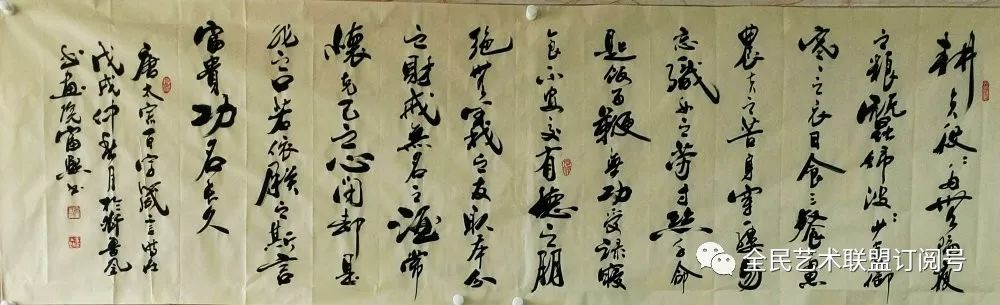 耕夫役役多無隔夜
之粮蠶婦波波少有御
寒之衣日食三餐思
農夫之苦身穿一縷
念織女之勞寸絲千命
匙飯百鞭無功受祿寢
食不安交有德之朋
絕無義之友取本分
之財戒無名之酒常
懷克己之心閉却是
非之口若依朕之斯言
富貴功名長久
唐太宗百字箴言時在
戊戌仲春月於
書畫院富書
全民艺术联盟订阅号